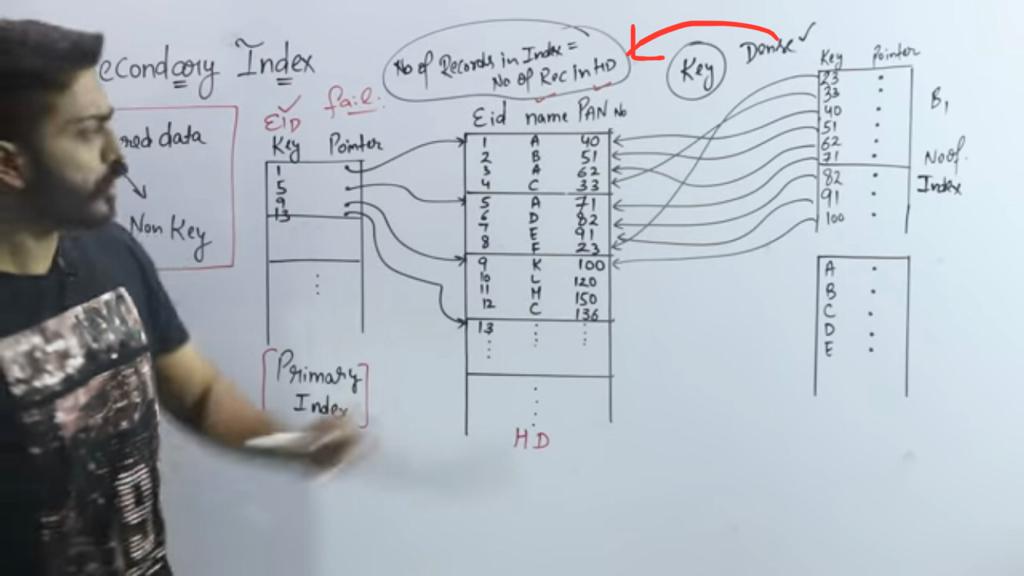 econdary Index
red data
Non Key
EID fail.
Key Pointer
1
5
9
13
[Primary
Index]
No of Records in Index =
No of Rec in HD
Eid name PAN No
1 A 40
2 B 51
3 A 62
4 C 33
5 A 71
6 D 82
7 E 91
8 F 23
9 K 100
10 L 120
11 M 150
12 C 136
13
HD
Key
Dense
Key Pointer
23
33
40
51
62
71
82
91
100
B1
No of.
Index
A
B
C
D
E